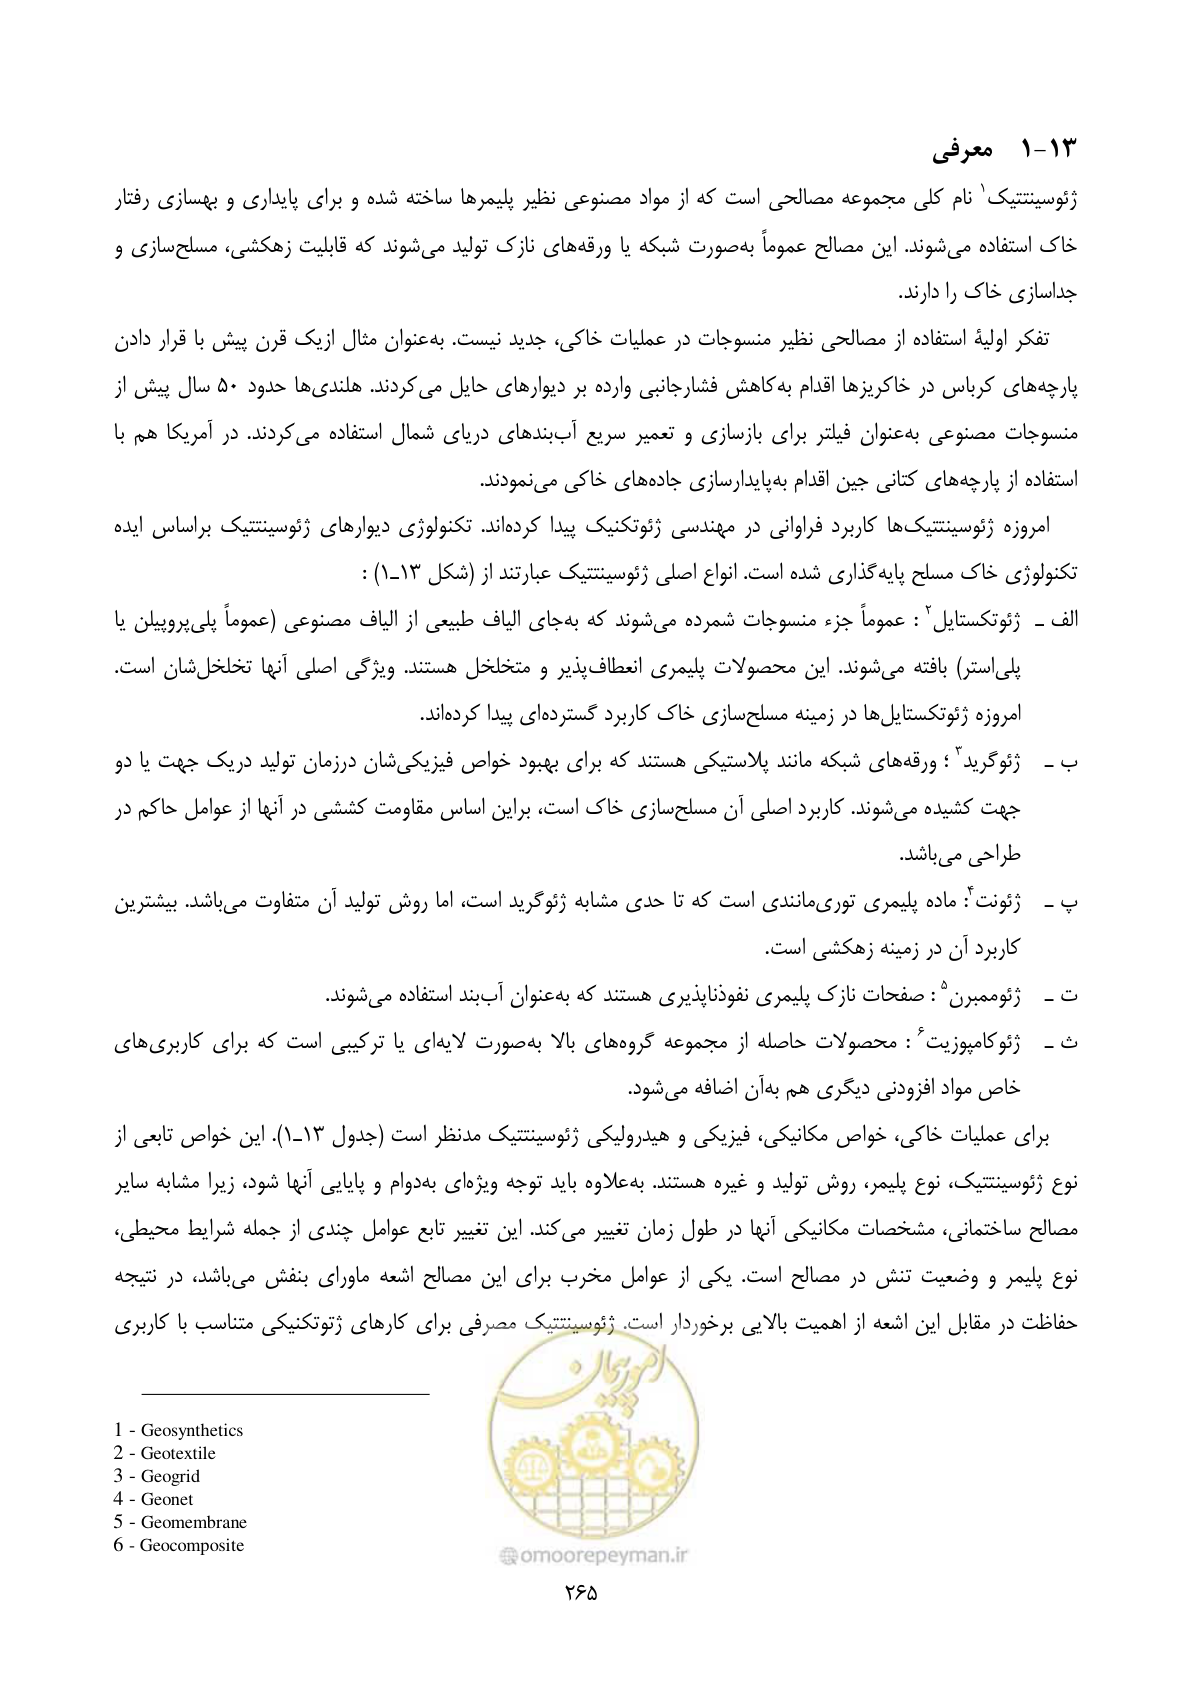 ۱۳-۱ معرفی
ژئوسینتتیک۱ نام کلی مجموعه مصالحی است که از مواد مصنوعی نظیر پلیمرها ساخته شده و برای پایداری و بهسازی رفتار
خاک استفاده می‌شوند. این مصالح عموماً به‌صورت شبکه یا ورقه‌های نازک تولید می‌شوند که قابلیت زهکشی، مسلح‌سازی و
جداسازی خاک را دارند.
تفکر اولیۀ استفاده از مصالحی نظیر منسوجات در عملیات خاکی، جدید نیست. به‌عنوان مثال ازیک قرن پیش با قرار دادن
پارچه‌های کرباس در خاکریزها اقدام به‌کاهش فشارجانبی وارده بر دیوارهای حایل می‌کردند. هلندی‌ها حدود ۵۰ سال پیش از
منسوجات مصنوعی به‌عنوان فیلتر برای بازسازی و تعمیر سریع آب‌بندهای دریای شمال استفاده می‌کردند. در آمریکا هم با
استفاده از پارچه‌های کتانی جین اقدام به‌پایدارسازی جاده‌های خاکی می‌نمودند.
امروزه ژئوسینتتیک‌ها کاربرد فراوانی در مهندسی ژئوتکنیک پیدا کرده‌اند. تکنولوژی دیوارهای ژئوسینتتیک براساس ایده
تکنولوژی خاک مسلح پایه‌گذاری شده است. انواع اصلی ژئوسینتتیک عبارتند از (شکل ۱۳ـ۱) :
الف ـ ژئوتکستایل۲ : عموماً جزء منسوجات شمرده می‌شوند که به‌جای الیاف طبیعی از الیاف مصنوعی (عموماً پلی‌پروپیلن یا
پلی‌استر) بافته می‌شوند. این محصولات پلیمری انعطاف‌پذیر و متخلخل هستند. ویژگی اصلی آنها تخلخل‌شان است.
امروزه ژئوتکستایل‌ها در زمینه مسلح‌سازی خاک کاربرد گسترده‌ای پیدا کرده‌اند.
ب ـ ژئوگرید۳ ؛ ورقه‌های شبکه مانند پلاستیکی هستند که برای بهبود خواص فیزیکی‌شان درزمان تولید دریک جهت یا دو
جهت کشیده می‌شوند. کاربرد اصلی آن مسلح‌سازی خاک است، براین اساس مقاومت کششی در آنها از عوامل حاکم در
طراحی می‌باشد.
پ ـ ژئونت۴: ماده پلیمری توری‌مانندی است که تا حدی مشابه ژئوگرید است، اما روش تولید آن متفاوت می‌باشد. بیشترین
کاربرد آن در زمینه زهکشی است.
ت ـ ژئوممبرن۵ : صفحات نازک پلیمری نفوذناپذیری هستند که به‌عنوان آب‌بند استفاده می‌شوند.
ث ـ ژئوکامپوزیت۶ : محصولات حاصله از مجموعه گروه‌های بالا به‌صورت لایه‌ای یا ترکیبی است که برای کاربری‌های
خاص مواد افزودنی دیگری هم به‌آن اضافه می‌شود.
برای عملیات خاکی، خواص مکانیکی، فیزیکی و هیدرولیکی ژئوسینتتیک مدنظر است (جدول ۱۳ـ۱). این خواص تابعی از
نوع ژئوسینتتیک، نوع پلیمر، روش تولید و غیره هستند. به‌علاوه باید توجه ویژه‌ای به‌دوام و پایایی آنها شود، زیرا مشابه سایر
مصالح ساختمانی، مشخصات مکانیکی آنها در طول زمان تغییر می‌کند. این تغییر تابع عوامل چندی از جمله شرایط محیطی،
نوع پلیمر و وضعیت تنش در مصالح است. یکی از عوامل مخرب برای این مصالح اشعه ماورای بنفش می‌باشد، در نتیجه
حفاظت در مقابل این اشعه از اهمیت بالایی برخوردار است. ژئوسینتتیک مصرفی برای کارهای ژئوتکنیکی متناسب با کاربری
امور پیمان
1 - Geosynthetics
2 - Geotextile
3 - Geogrid
4 - Geonet
5 - Geomembrane
6 - Geocomposite
@omoorepeyman.ir
۲۶۵